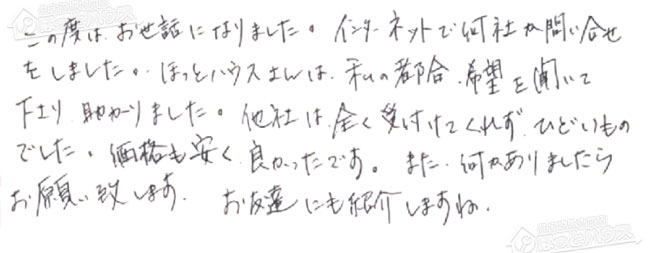 この度は、お世話になりました。インターネットで何社か問い合せ
をしました。ほっとハウスさんは、私の都合、希望を聞いて
下さり、助かりました。他社は、全く受付けてくれず、ひどいもの
でした。価格も安く、良かったです。また、何かありましたら
お願い致します。お友達にも紹介しますね。
ほっとハウス